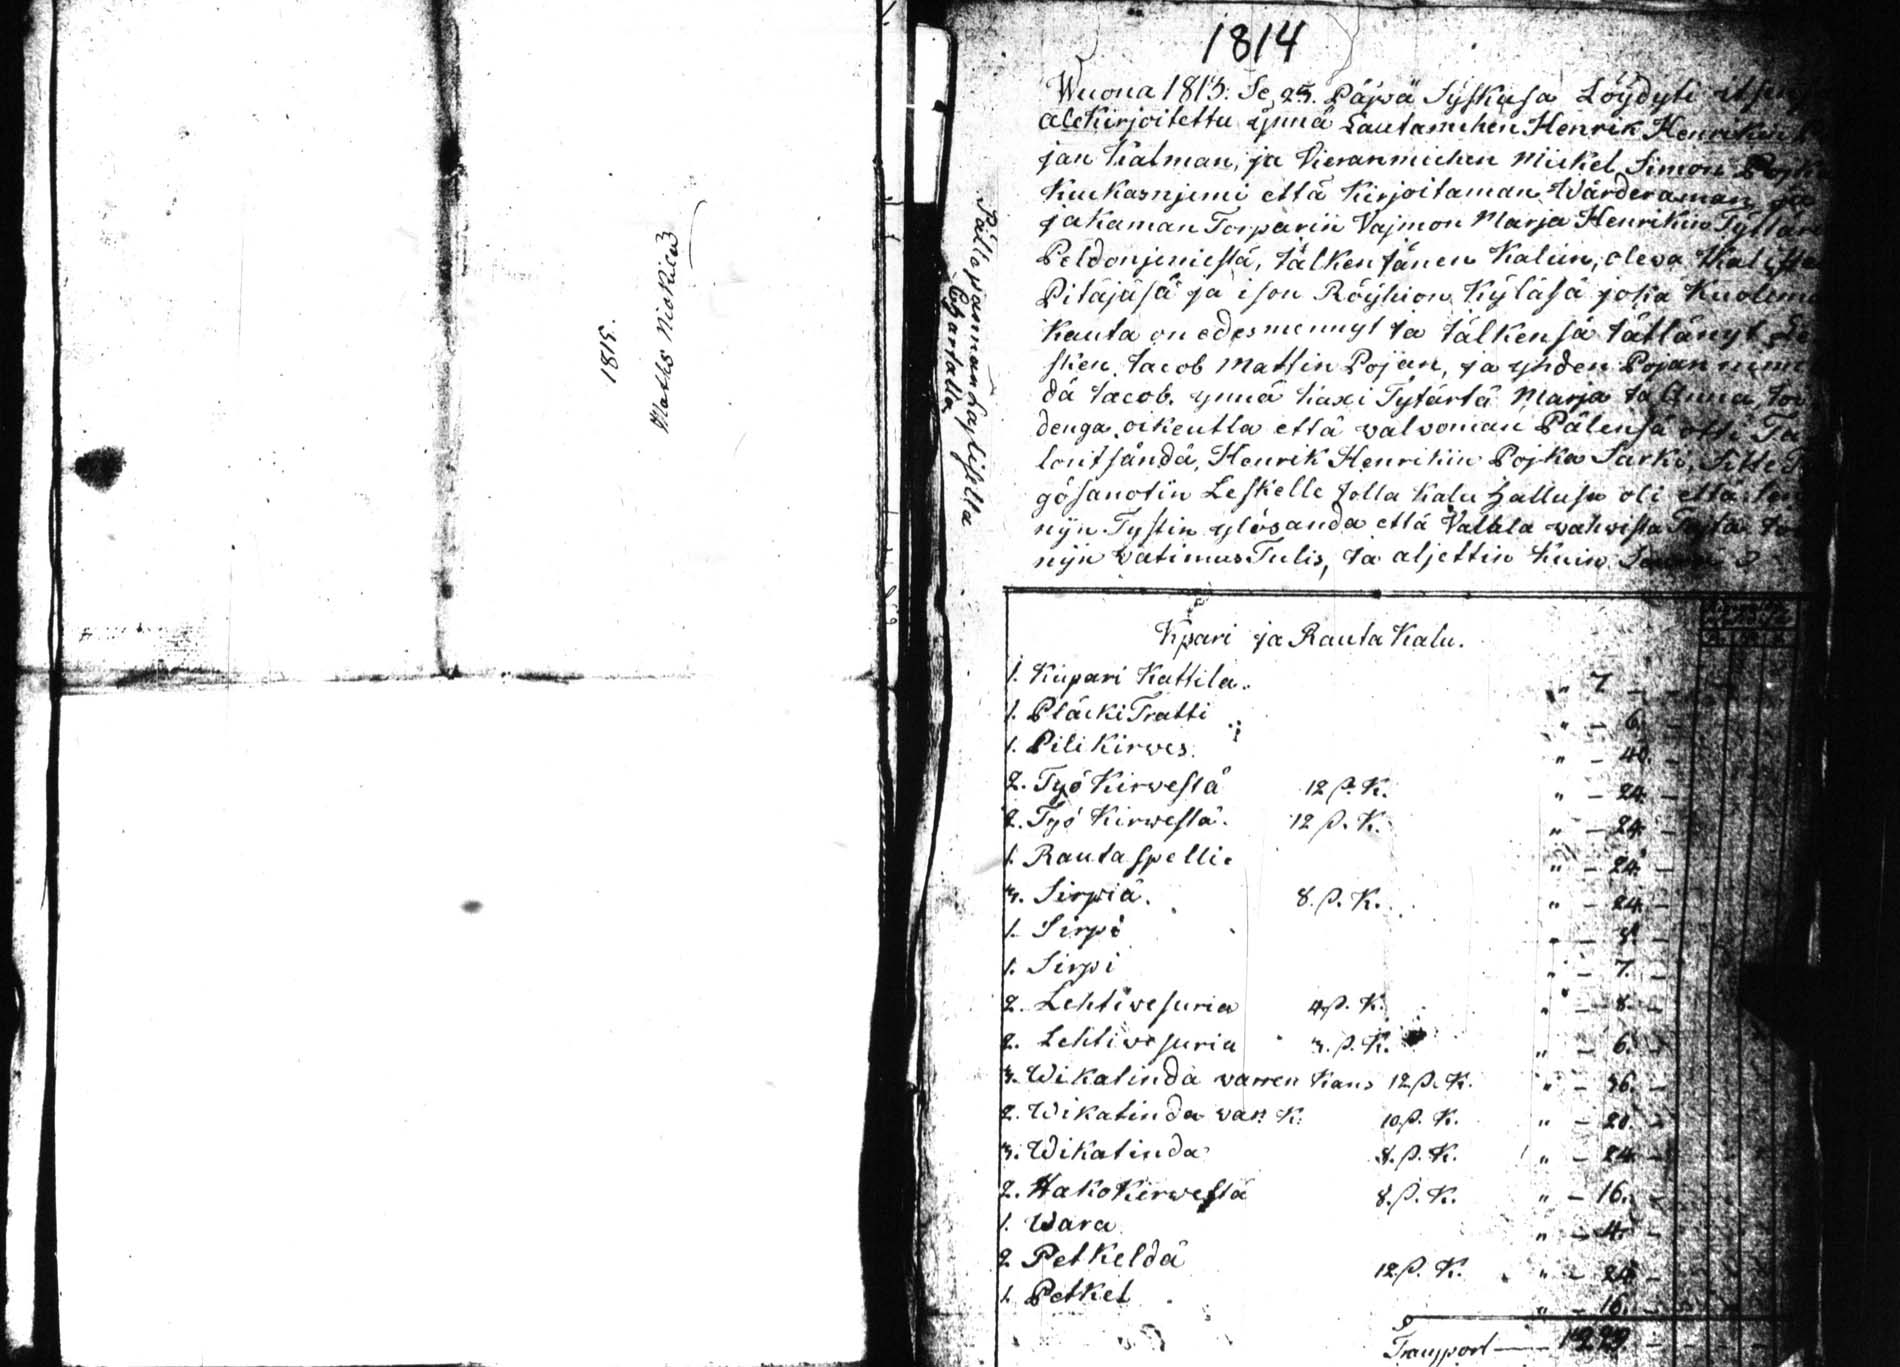 1815.
Mathts Niokies
Pälle pannan Lajlisella
Chartalla
1814
Wuona 1813. Se 25. Päjwä Syskusa Löydyti itsensä
alekirjoitettu ynnä Lautamiehen Henrik Henrikin
jan Kalman, ja Vieranmiehen Mickel Simon Pojka
Kuckasnjemi että Kirjoitaman Wärderaman, ja
jakaman Torparin Vajmon Marja Henrikin Tyttären
Peldonjemestä, tälken jänen Kalun, oleva Kaliste
Pitäjäsä ja ison Röyhion Kyläsä joka Kuoleman
Kauta on edesmennyt ja tälkensä jättänyt Le
sken, Jacob Mattin Pojan, ja yhden Pojan nime
dä Jacob, ynnä Kaxi Tytärtä Marja ja Anna, joi
denga oikeutta että walwoman Pälensä otti Ta
lonisändä, Henrik Henrikin Pojka Sarki. Sitte
gösanotin Leskelle jolla Kalu hallusa oli että
nijn Tystin ylösanda että Valala wahwista
nijn Vatimus Tulis, ja aljettin Kuin
Kpari ja Rauta Kalu.
1. Kupari Kattila. " 7 –
1. Pläcki Tratti " – 6.
1. Pili Kirwes. " – 40.
2. Työ Kirwestä 12 β. K. " – 24. –
2. Työ Kirwestä. 12 β. K. " – 24. –
1. Rauta spelli. " – 24. –
3. Sirpiä. 8. β. K. " – 24. –
1. Sirpi " – 8. –
1. Sirpi " – 7. –
2. Lehtivesuria 4. β. K. " – 8. –
2. Lehtivesuria 3. β. K. " – 6. –
3. Wikatinda varren Kans 12 β. K. " – 36. –
2. Wikatinda var. K. 10. β. K. " – 20. –
3. Wikatinda 8. β. K. " – 24. –
2. Hako Kirwestä 8. β. K. " – 16. –
1. Wara " – 4. –
2 Petkeldä 12. β. K. " – 24. –
1. Petkel " – 16. –
Transport